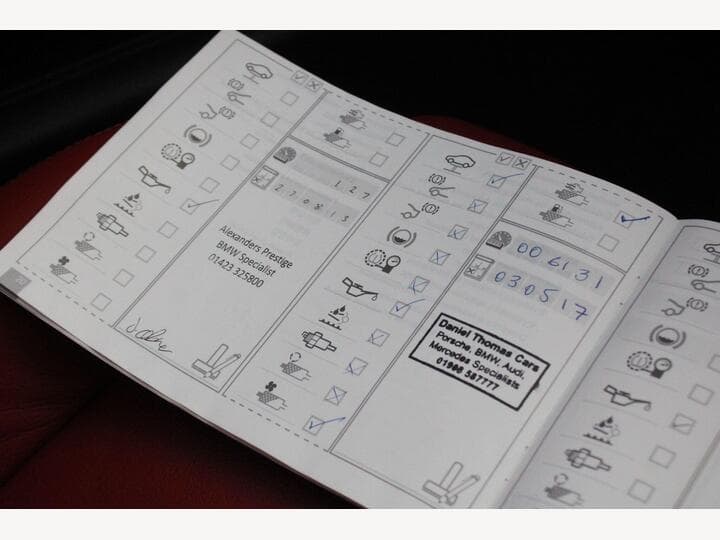 1 2 7
2 7 0 8 1 3
Alexanders Prestige
BMW Specialist
01423 325800
0 0 6 1 3 1
0 3 0 5 1 7
Daniel Thomas Cars
Porsche, BMW, Audi,
Mercedes Specialists